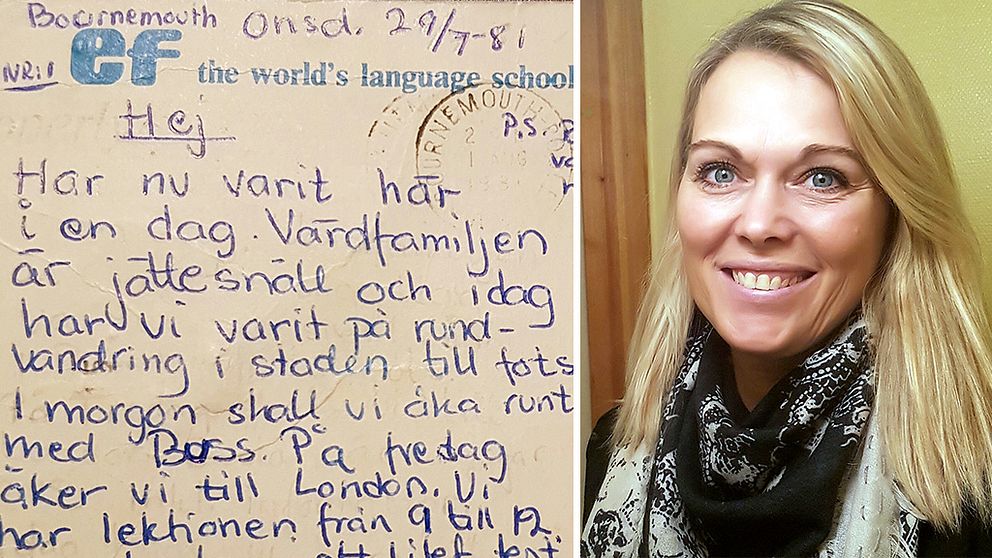 Bournemouth onsd. 29/7-81
NR:1 ef the world's language school
Hej
P.S.
Har nu varit här
i en dag. Värdfamiljen
är jättesnäll och idag
har vi varit på rund-
vandring i staden till fots
I morgon skall vi åka runt
med Buss. På fredag
åker vi till London. Vi
har lektionen från 9 till 12.